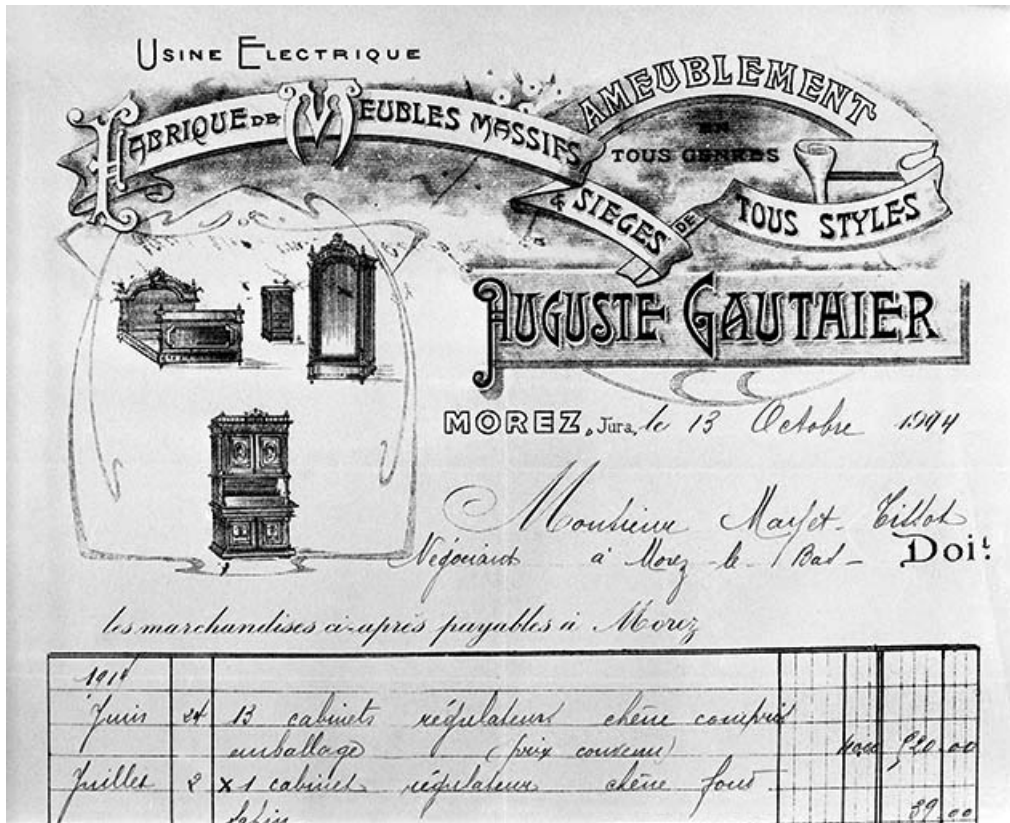 USINE ELECTRIQUE
FABRIQUE DE MEUBLES MASSIFS
AMEUBLEMENT
EN
TOUS GENRES
& SIEGES DE TOUS STYLES
AUGUSTE GAUTHIER
MOREZ, Jura, le 13 Octobre 1914
Monsieur
Négociant à Morez le Bas Doit
les marchandises ci-après payables à Morez
1914
Juin 24 13 cabinets régulateurs chêne compris
emballage (prix convenu) 40.00 520.00
Juillet 2 x 1 cabinet régulateur chêne fond
39.00